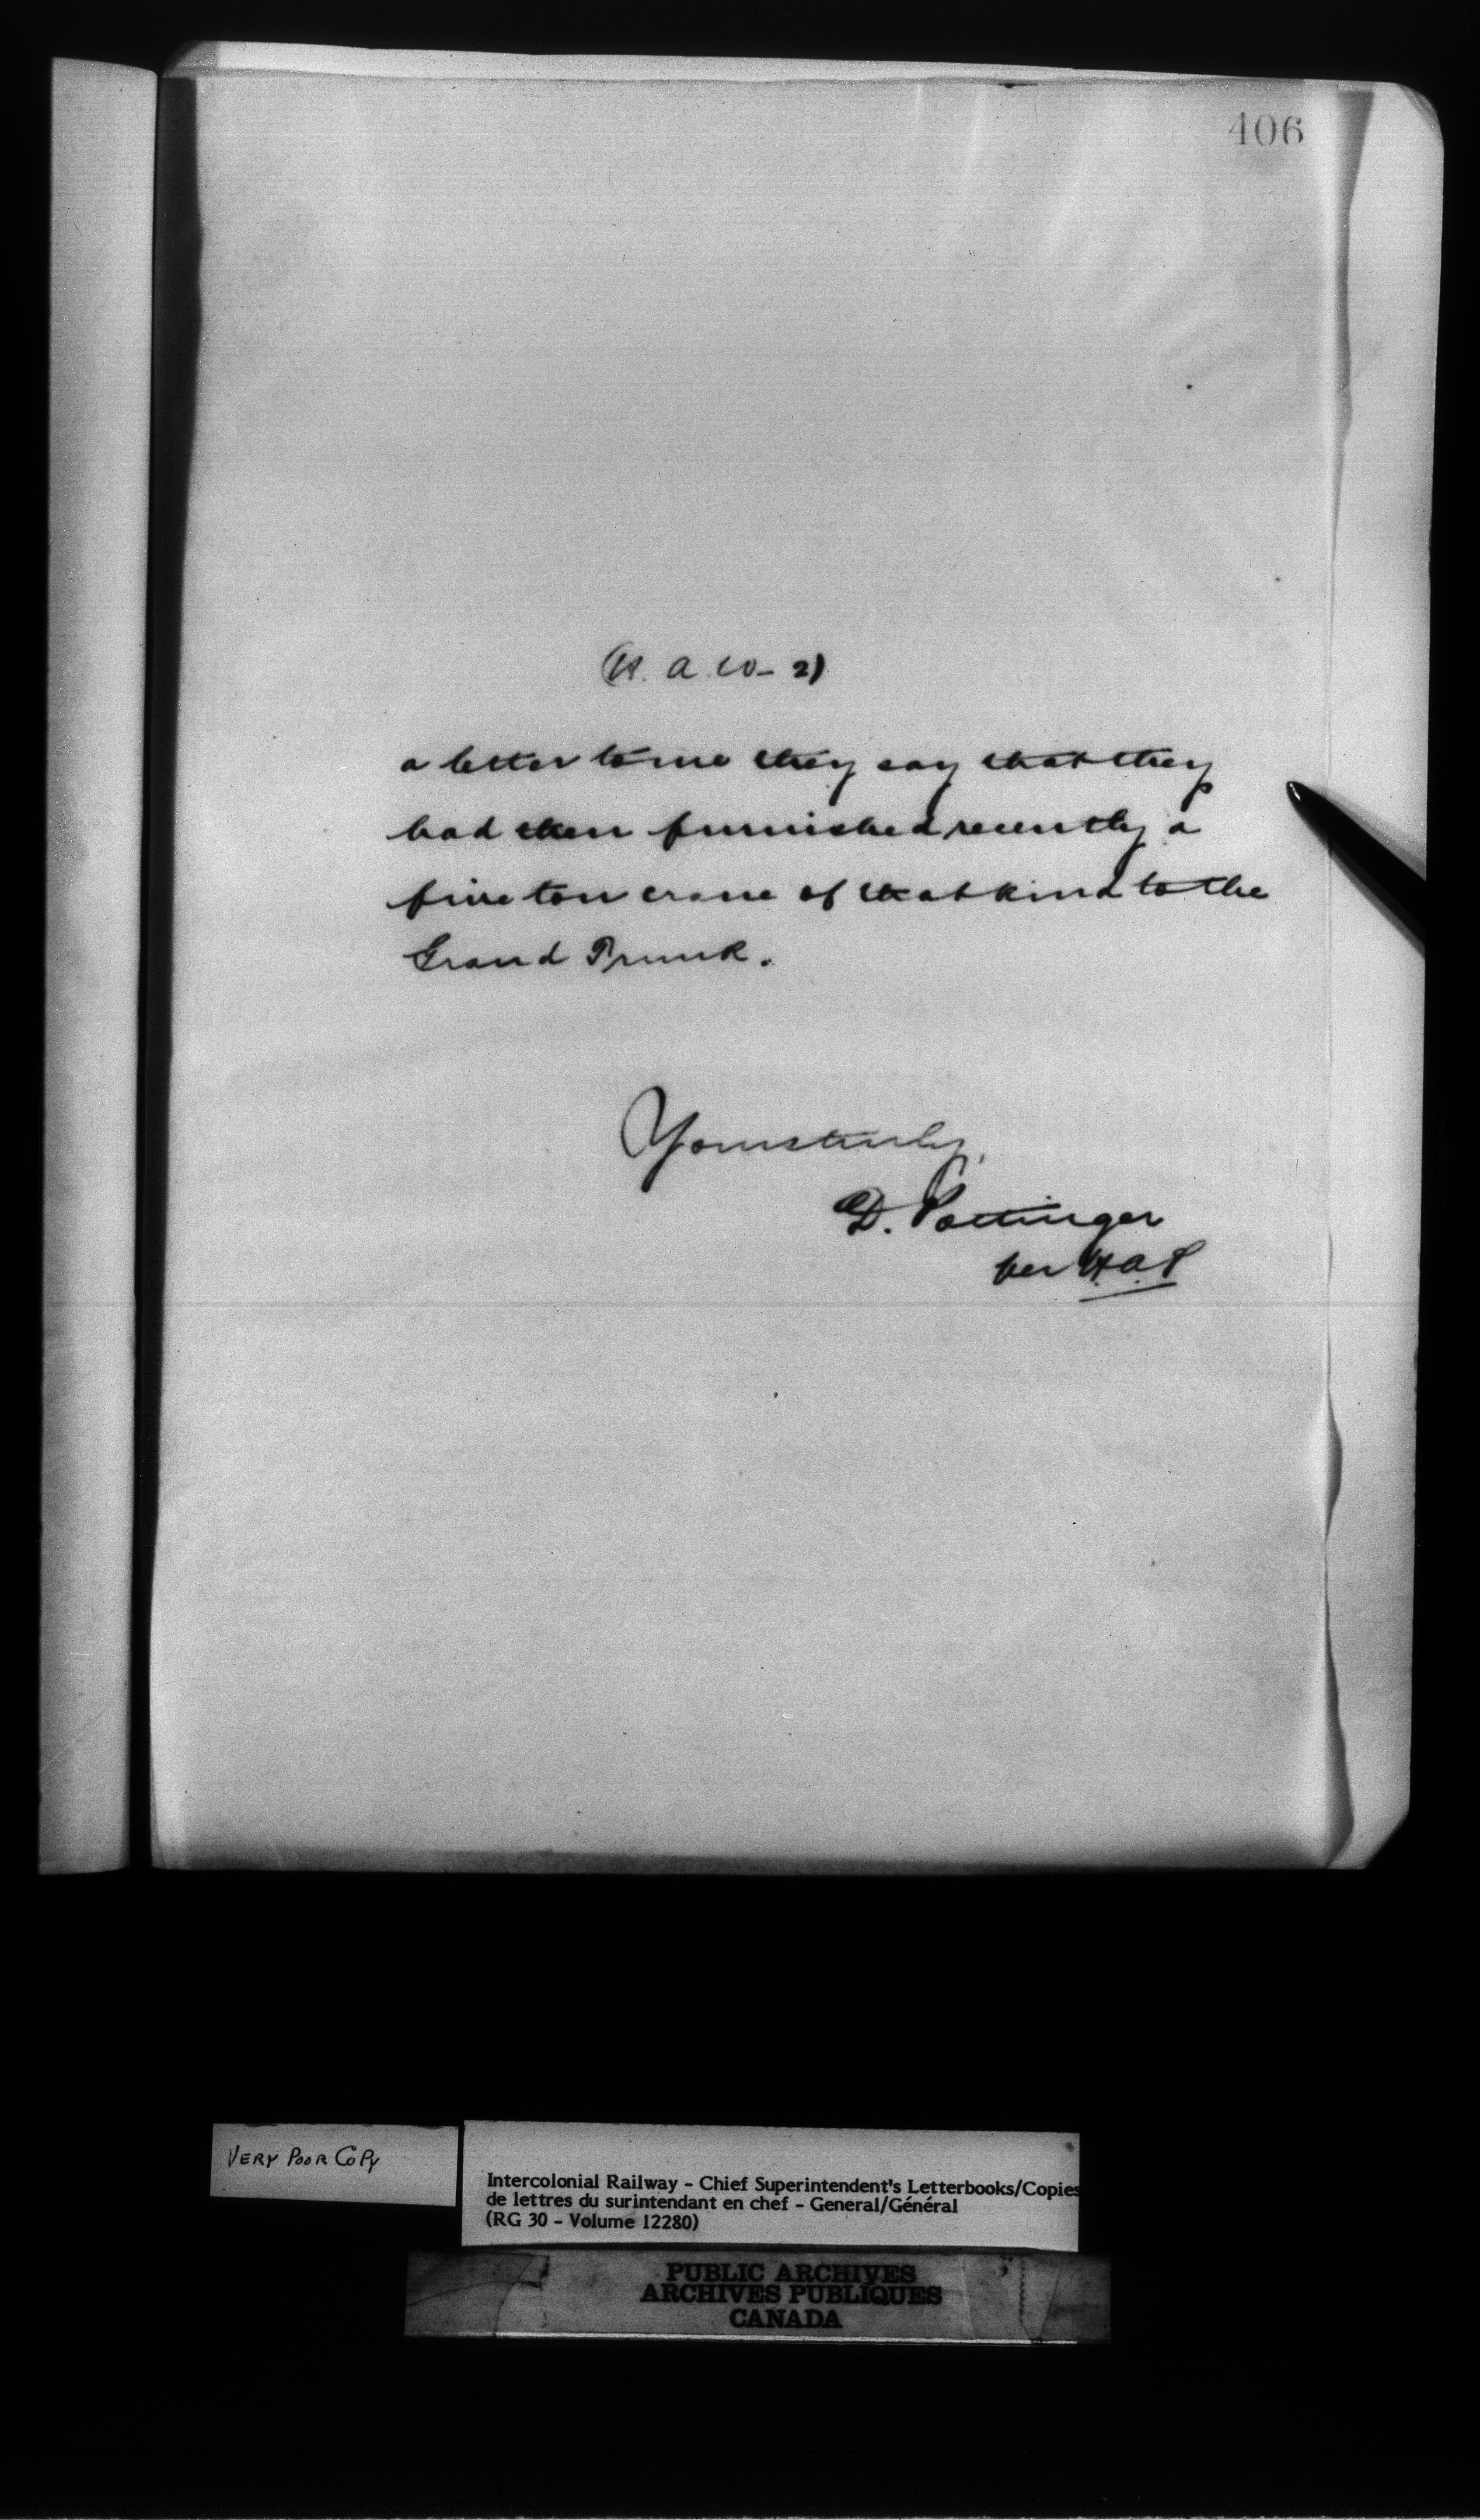 406
(H. A. W - 2)
a letter to me they say that they
had then furnished recently a
five ton crane of that kind to the
Grand Trunk.
Yours truly,
D. Pottinger
per H.A.P
VERY POOR COPY
Intercolonial Railway - Chief Superintendent's Letterbooks/Copies
de lettres du surintendant en chef - General/Général
(RG 30 - Volume 12280)
PUBLIC ARCHIVES
ARCHIVES PUBLIQUES
CANADA